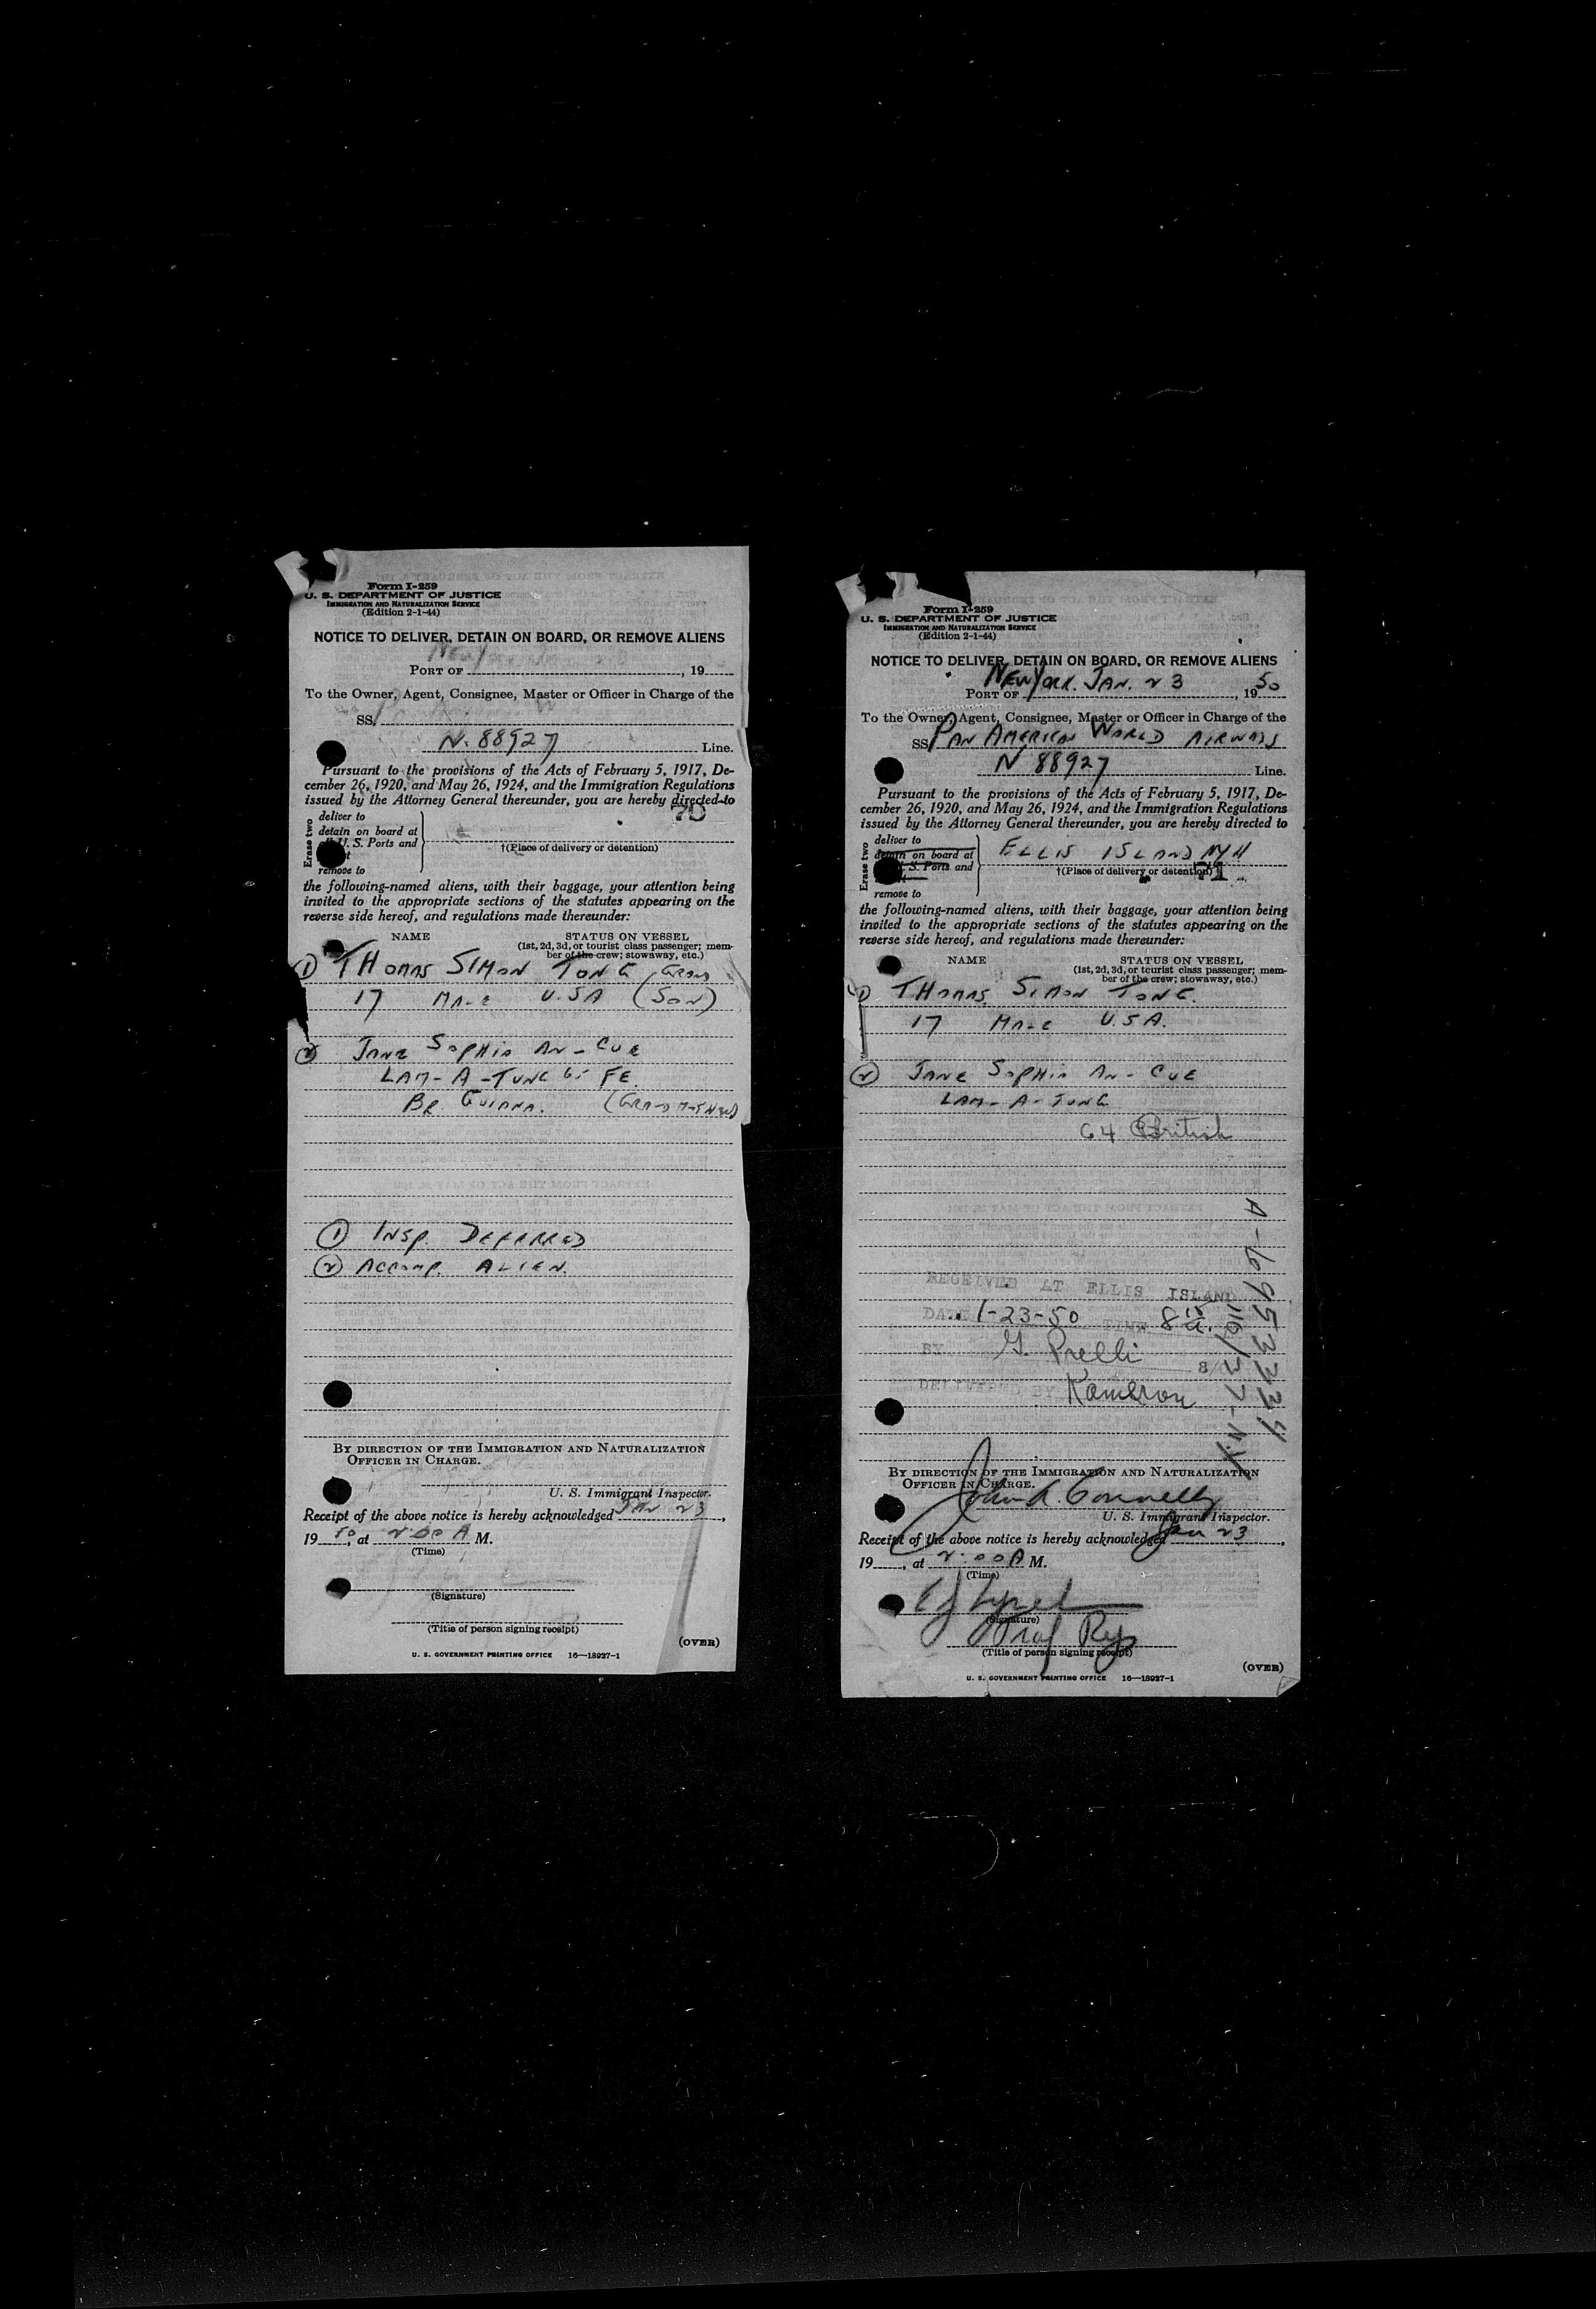 Form I-259
U. S. DEPARTMENT OF JUSTICE
IMMIGRATION AND NATURALIZATION SERVICE
(Edition 2-1-44)
NOTICE TO DELIVER, DETAIN ON BOARD, OR REMOVE ALIENS
New York
PORT OF , 19
To the Owner, Agent, Consignee, Master or Officer in Charge of the
SS.
N. 88927 Line.
Pursuant to the provisions of the Acts of February 5, 1917, De-
cember 26, 1920, and May 26, 1924, and the Immigration Regulations
issued by the Attorney General thereunder, you are hereby directed to
70
Erase two
deliver to
detain on board at
U. S. Ports and
remove to
†(Place of delivery or detention)
the following-named aliens, with their baggage, your attention being
invited to the appropriate sections of the statutes appearing on the
reverse side hereof, and regulations made thereunder:
NAME STATUS ON VESSEL
(1st, 2d, 3d, or tourist class passenger; mem-
ber of the crew; stowaway, etc.)
① THOMAS SIMON TONG (GRAND
17 MALE U.S.A (SON)
② JANE SOPHIA AN-CUE
LAM-A-TUNG FE.
BR. GUIANA. (GRANDMOTHER)
① INSP. DEFERRED
② ACCOMP. ALIEN.
BY DIRECTION OF THE IMMIGRATION AND NATURALIZATION
OFFICER IN CHARGE.
U. S. Immigrant Inspector.
Receipt of the above notice is hereby acknowledged JAN 23,
19 50, at 2:00 A M.
(Time)
(Signature)
(Title of person signing receipt)
(OVER)
U. S. GOVERNMENT PRINTING OFFICE 16—18927-1
Form I-259
U. S. DEPARTMENT OF JUSTICE
IMMIGRATION AND NATURALIZATION SERVICE
(Edition 2-1-44)
NOTICE TO DELIVER, DETAIN ON BOARD, OR REMOVE ALIENS
PORT OF NEW YORK. JAN. 23, 19 50
To the Owner, Agent, Consignee, Master or Officer in Charge of the
SS PAN AMERICAN WORLD AIRWAYS
N 88927 Line.
Pursuant to the provisions of the Acts of February 5, 1917, De-
cember 26, 1920, and May 26, 1924, and the Immigration Regulations
issued by the Attorney General thereunder, you are hereby directed to
Erase two
deliver to
detain on board at
S. Ports and
remove to
ELLIS ISLAND NYH
†(Place of delivery or detention)
71
the following-named aliens, with their baggage, your attention being
invited to the appropriate sections of the statutes appearing on the
reverse side hereof, and regulations made thereunder:
NAME STATUS ON VESSEL
(1st, 2d, 3d, or tourist class passenger; mem-
ber of the crew; stowaway, etc.)
① THOMAS SIMON TONG.
17 MALE U.S.A.
② JANE SOPHIA AN-CUE
LAM-A-TUNG
64 British
A-6953334
116/37-N.Y
RECEIVED AT ELLIS ISLAND
DATE 1-23-50 TIME 8 15 a.
BY G. Prelli
DELIVERED BY Kameron
BY DIRECTION OF THE IMMIGRATION AND NATURALIZATION
OFFICER IN CHARGE.
John R. Connelly
U. S. Immigrant Inspector.
Receipt of the above notice is hereby acknowledged Jan 23,
19 , at 2:00 A M.
(Time)
(Signature)
(Title of person signing receipt)
(OVER)
U. S. GOVERNMENT PRINTING OFFICE 16—18927-1